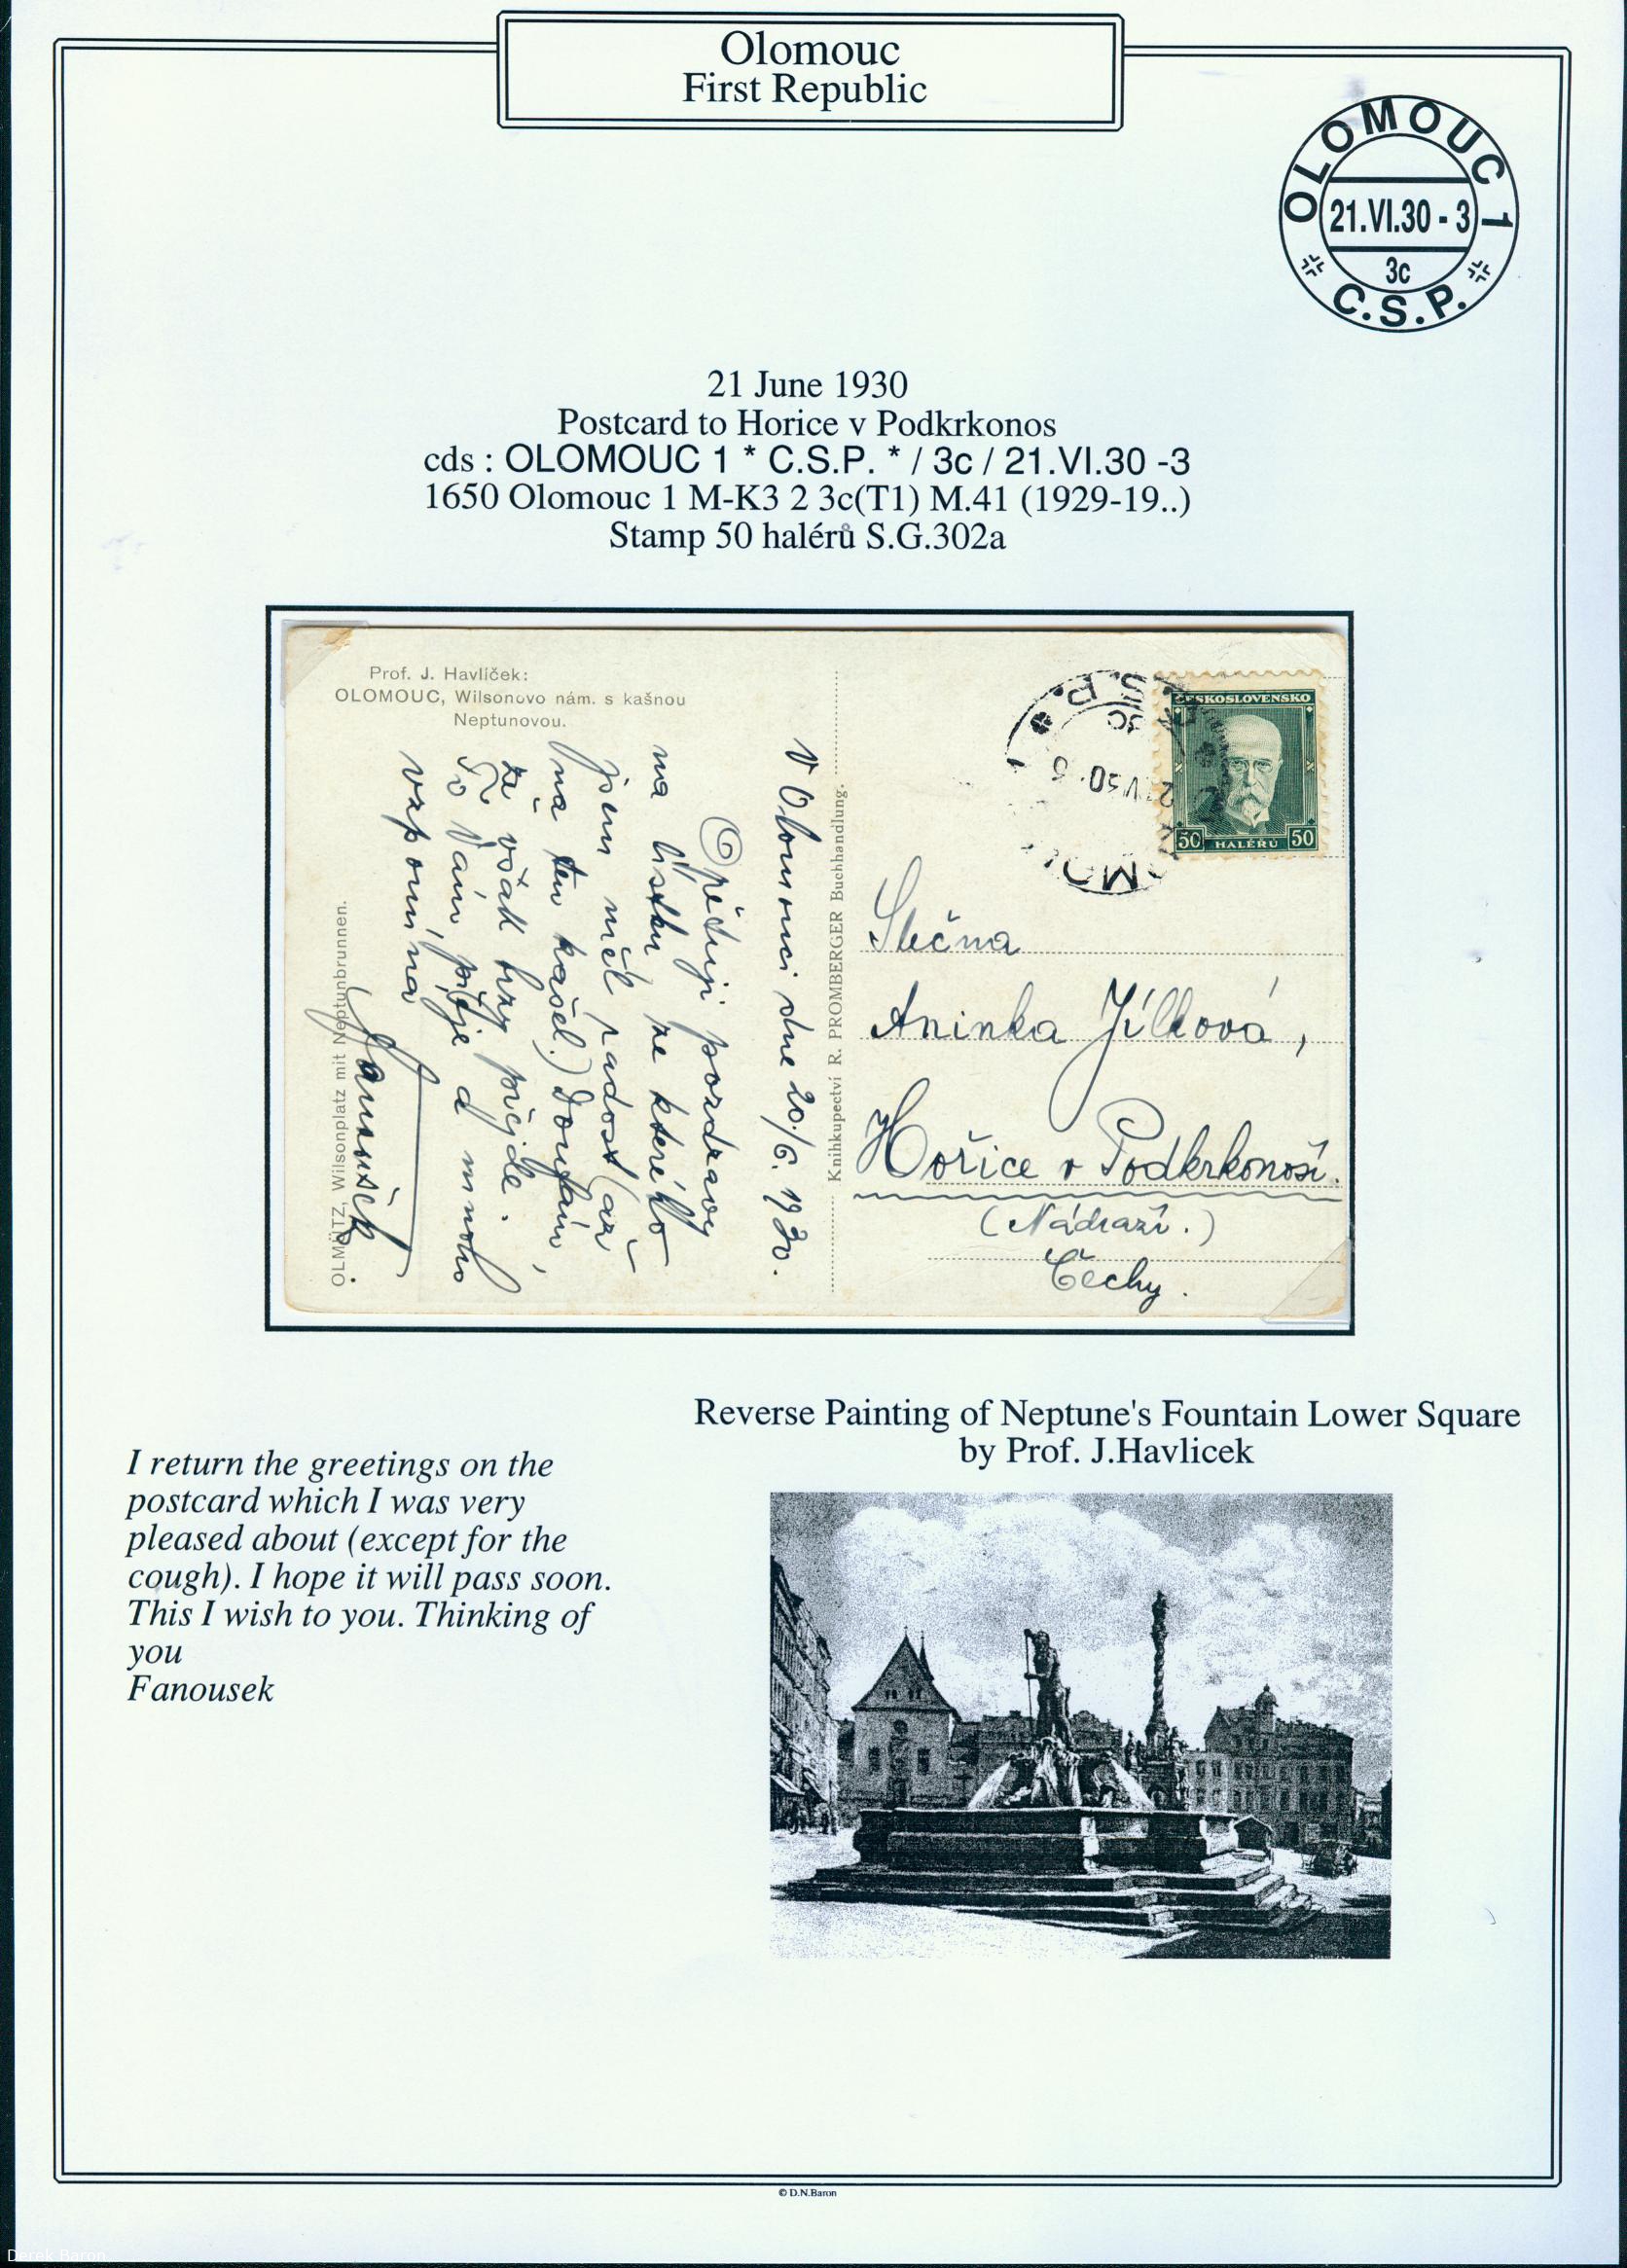 Olomouc
First Republic
OLOMOUC 1
21.VI.30 - 3
3c
C.S.P.
21 June 1930
Postcard to Horice v Podkrkonos
cds : OLOMOUC 1 * C.S.P. * / 3c / 21.VI.30 -3
1650 Olomouc 1 M-K3 2 3c(T1) M.41 (1929-19..)
Stamp 50 halérů S.G.302a
Prof. J. Havlíček:
OLOMOUC, Wilsonovo nám. s kašnou
Neptunovou.
V Olomouci dne 20./6. 1930.
Opětuji pozdravy
na lístku ze kterého
jsem měl radost (až
na ten kašel.) Doufám,
že však brzy přejde.
To Vám přeje a mnoho
vzpomíná
Fanoušek
OLMÜTZ, Wilsonplatz mit Neptunbrunnen.
Knihkupectví R. PROMBERGER Buchhandlung.
S.P.
3c
ČESKOSLOVENSKO
50 HALÉŘŮ 50
Slečna
Aninka Jílková,
Hořice v Podkrkonoší.
(Nádraží.)
Čechy.
Reverse Painting of Neptune's Fountain Lower Square
by Prof. J.Havlicek
I return the greetings on the
postcard which I was very
pleased about (except for the
cough). I hope it will pass soon.
This I wish to you. Thinking of
you
Fanousek
© D.N.Baron
Derek Baron